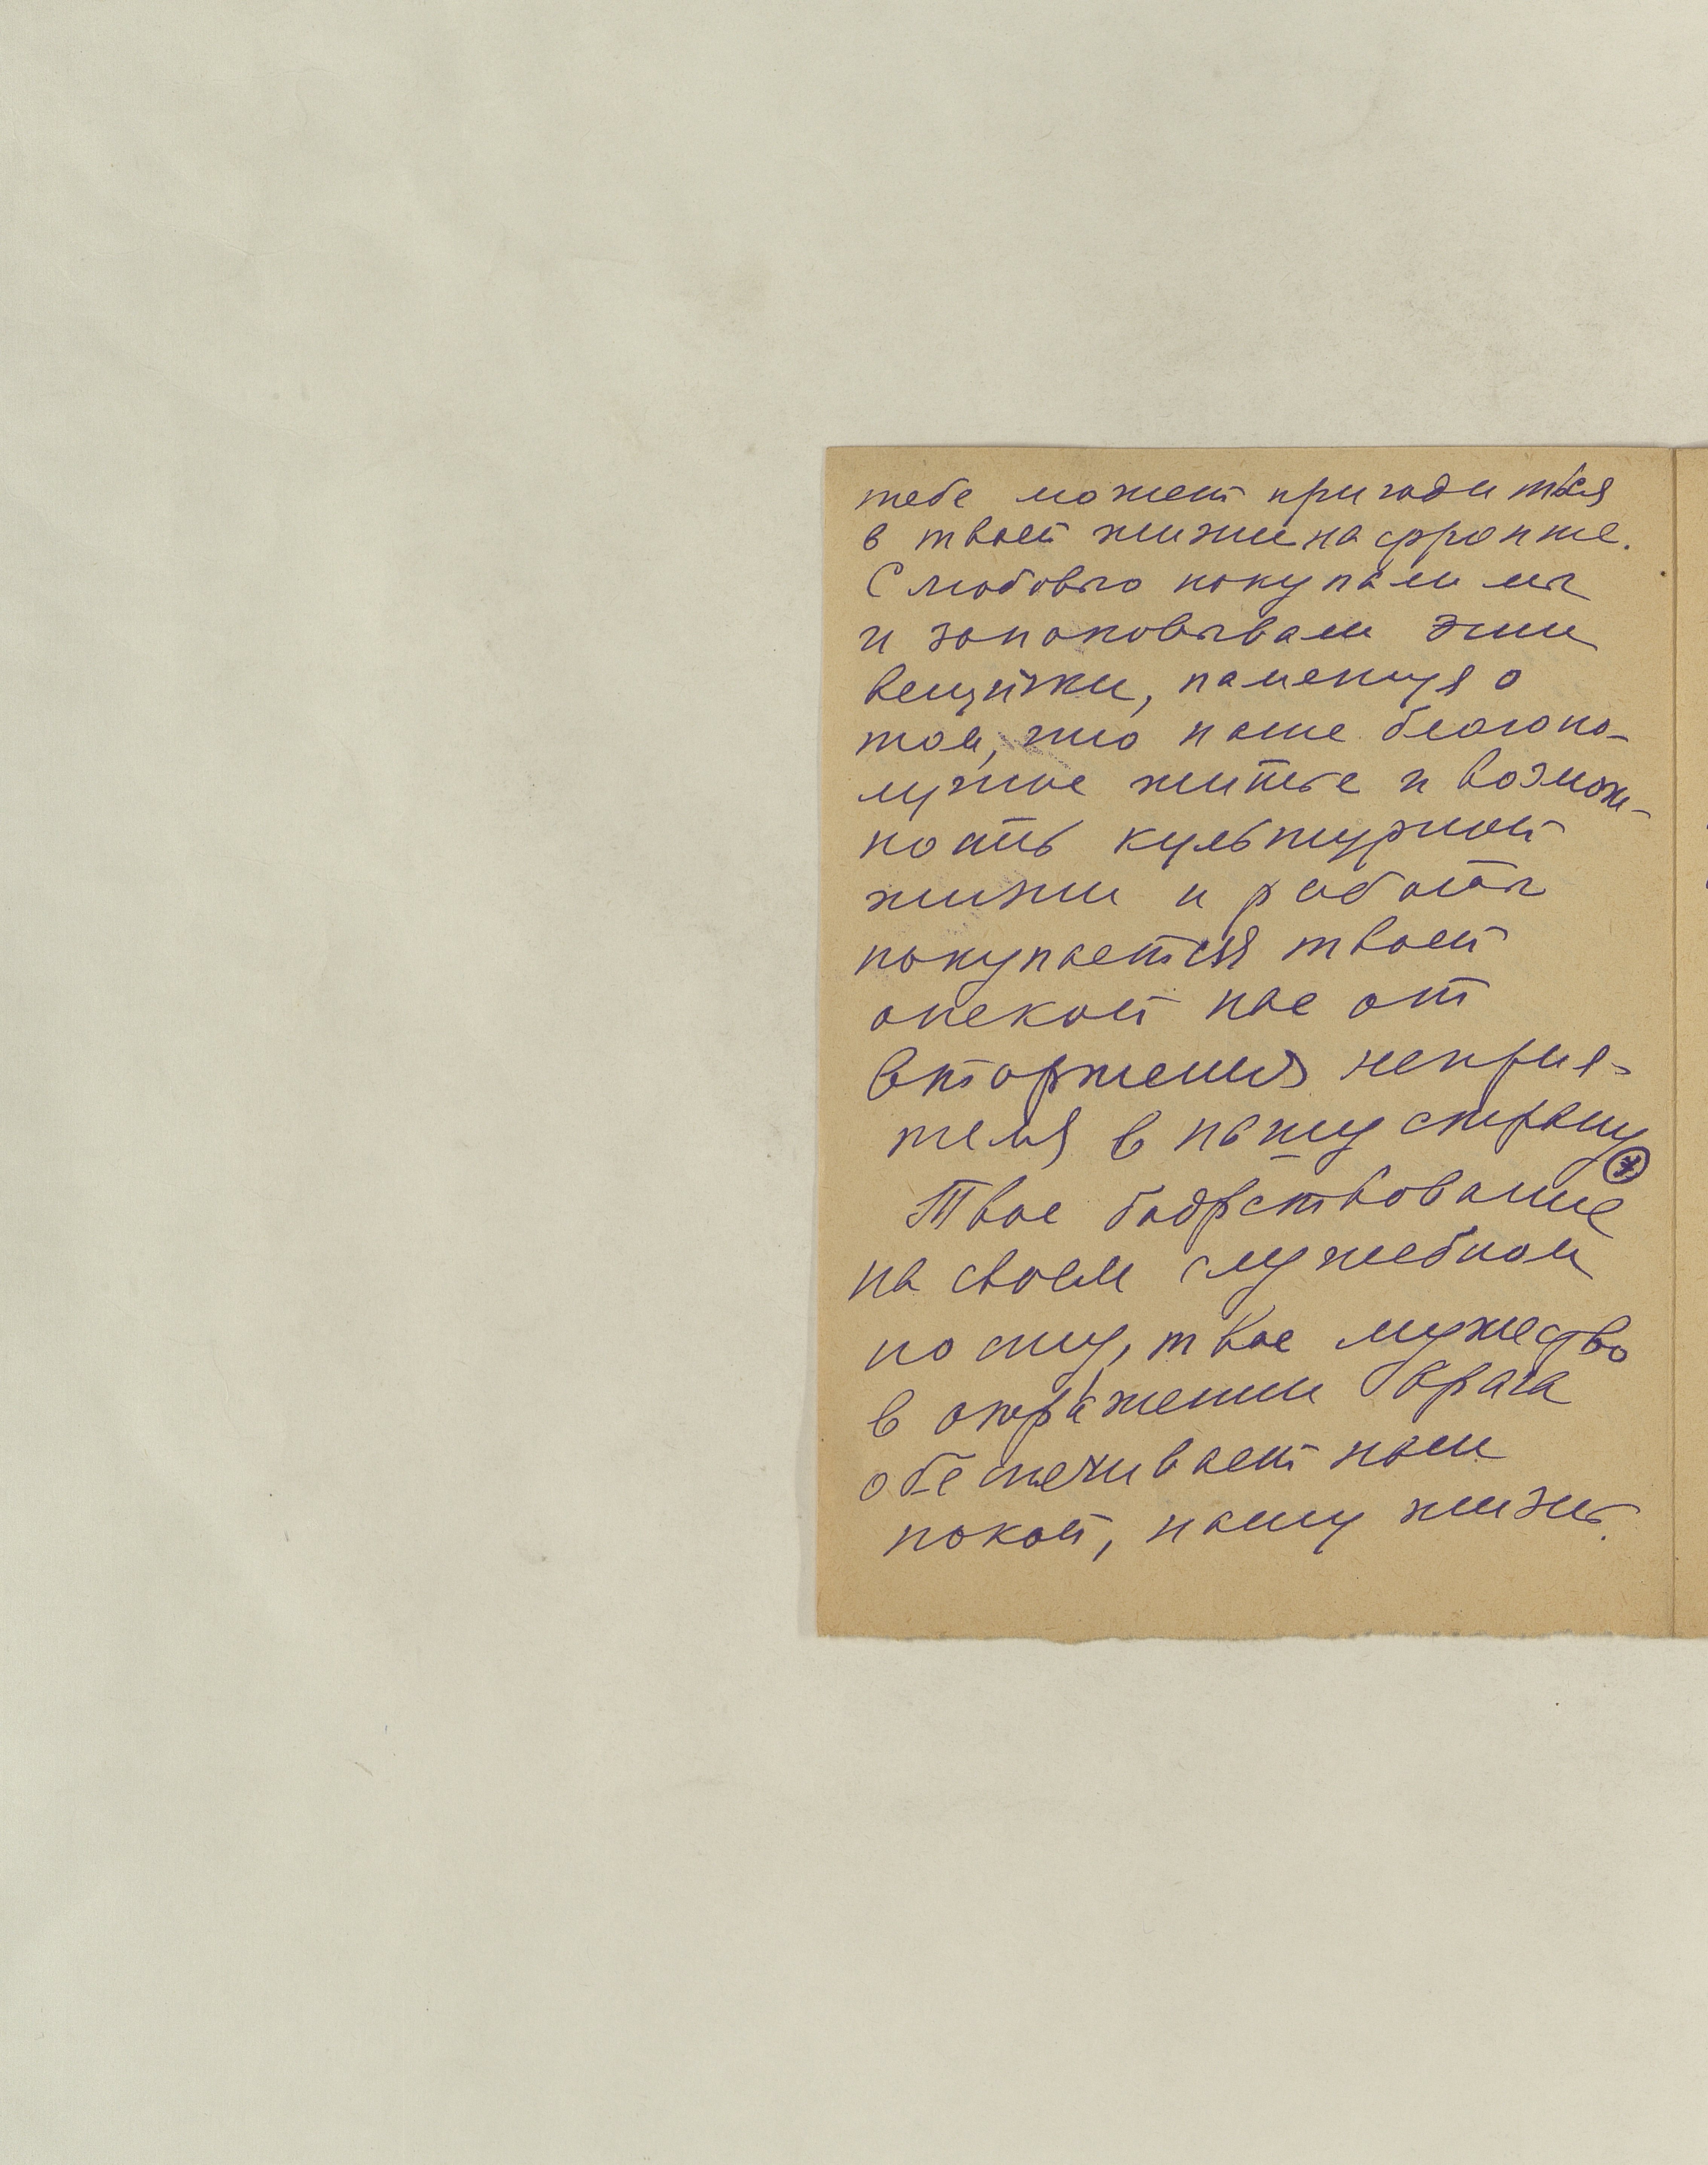 тебе может пригодиться
в твоей жизни на фронте.
С любовью покупали мы
и запаковывали эти
вещички, памятуя о
том, что наше благопо-
лучное житье и возмож-
ность культурной
жизни и работы
покупается твоей
опекой нас от
вторжения неприя-
теля в нашу страну
Твое бодрствование
на своем служебном
посту, твое мужество
в отражении врага
обеспечивает наш
покой, нашу жизнь.